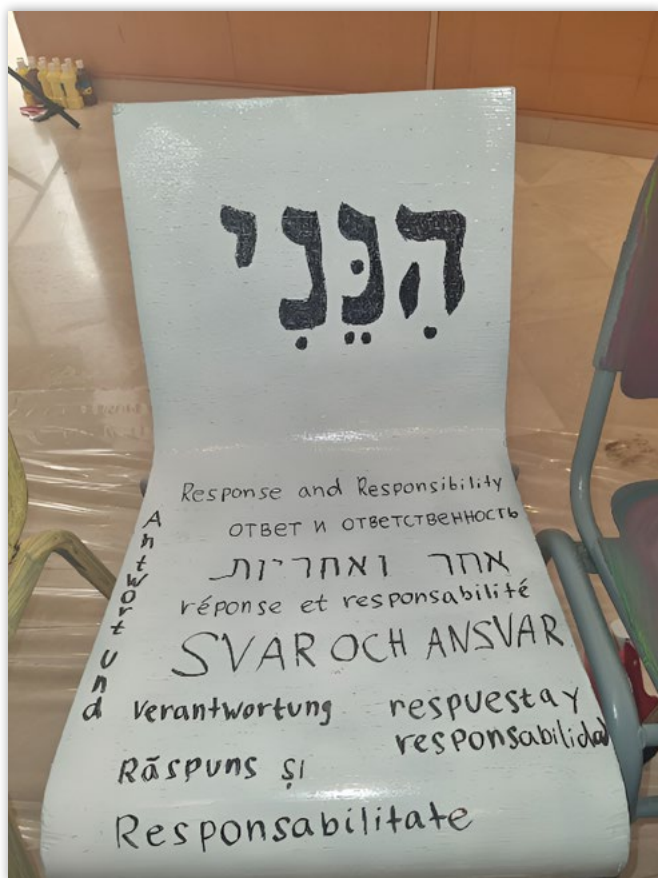 הִנֵּנִי
Response and Responsibility
ответ и ответственность
אחר ואחריות
réponse et responsabilité
SVAR OCH ANSVAR
Antwort und
Verantwortung
respuesta y
responsabilidad
Răspuns și
Responsabilitate